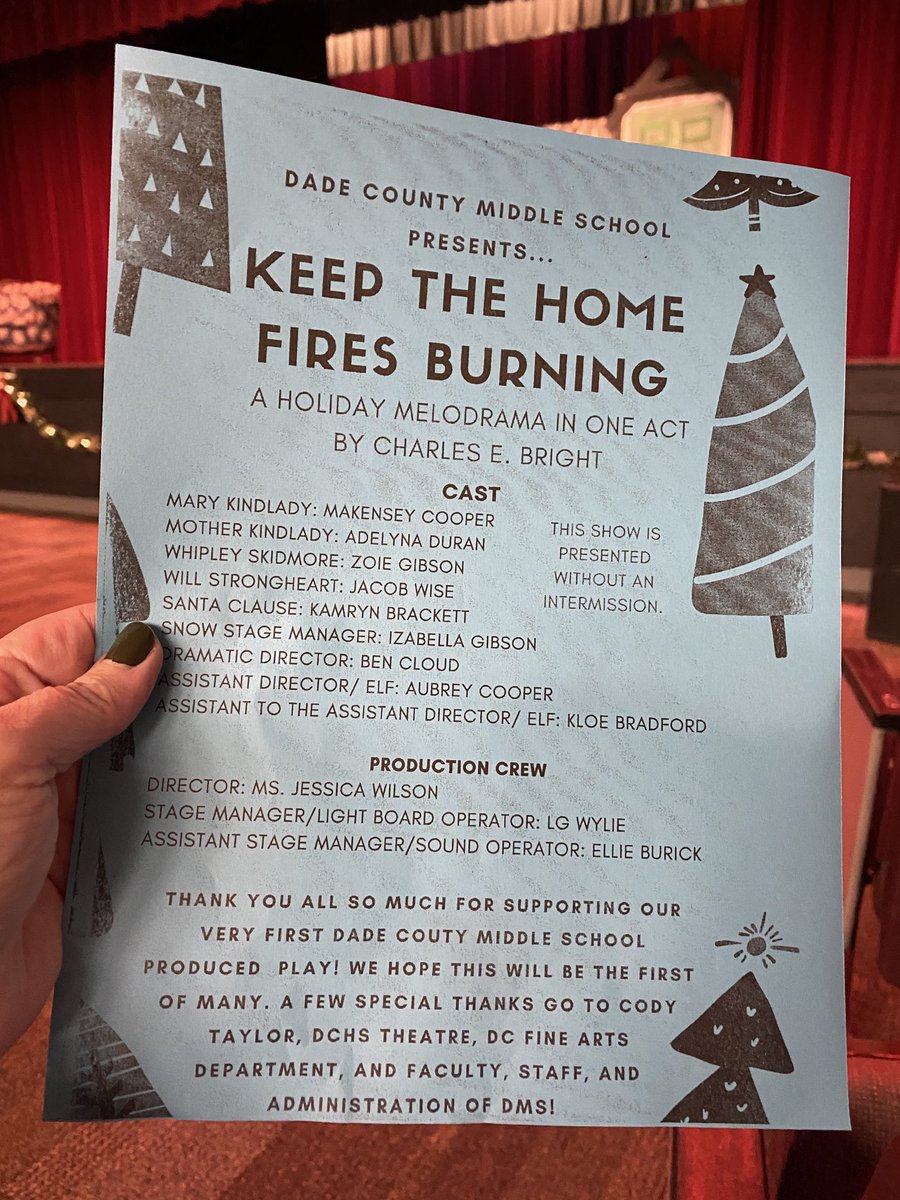 DADE COUNTY MIDDLE SCHOOL
PRESENTS...
KEEP THE HOME
FIRES BURNING
A HOLIDAY MELODRAMA IN ONE ACT
BY CHARLES E. BRIGHT
CAST
MARY KINDLADY: MAKENSEY COOPER
MOTHER KINDLADY: ADELYNA DURAN
WHIPLEY SKIDMORE: ZOIE GIBSON
WILL STRONGHEART: JACOB WISE
SANTA CLAUSE: KAMRYN BRACKETT
SNOW STAGE MANAGER: IZABELLA GIBSON
DRAMATIC DIRECTOR: BEN CLOUD
ASSISTANT DIRECTOR/ ELF: AUBREY COOPER
ASSISTANT TO THE ASSISTANT DIRECTOR/ ELF: KLOE BRADFORD
THIS SHOW IS
PRESENTED
WITHOUT AN
INTERMISSION.
PRODUCTION CREW
DIRECTOR: MS. JESSICA WILSON
STAGE MANAGER/LIGHT BOARD OPERATOR: LG WYLIE
ASSISTANT STAGE MANAGER/SOUND OPERATOR: ELLIE BURICK
THANK YOU ALL SO MUCH FOR SUPPORTING OUR
VERY FIRST DADE COUTY MIDDLE SCHOOL
PRODUCED PLAY! WE HOPE THIS WILL BE THE FIRST
OF MANY. A FEW SPECIAL THANKS GO TO CODY
TAYLOR, DCHS THEATRE, DC FINE ARTS
DEPARTMENT, AND FACULTY, STAFF, AND
ADMINISTRATION OF DMS!